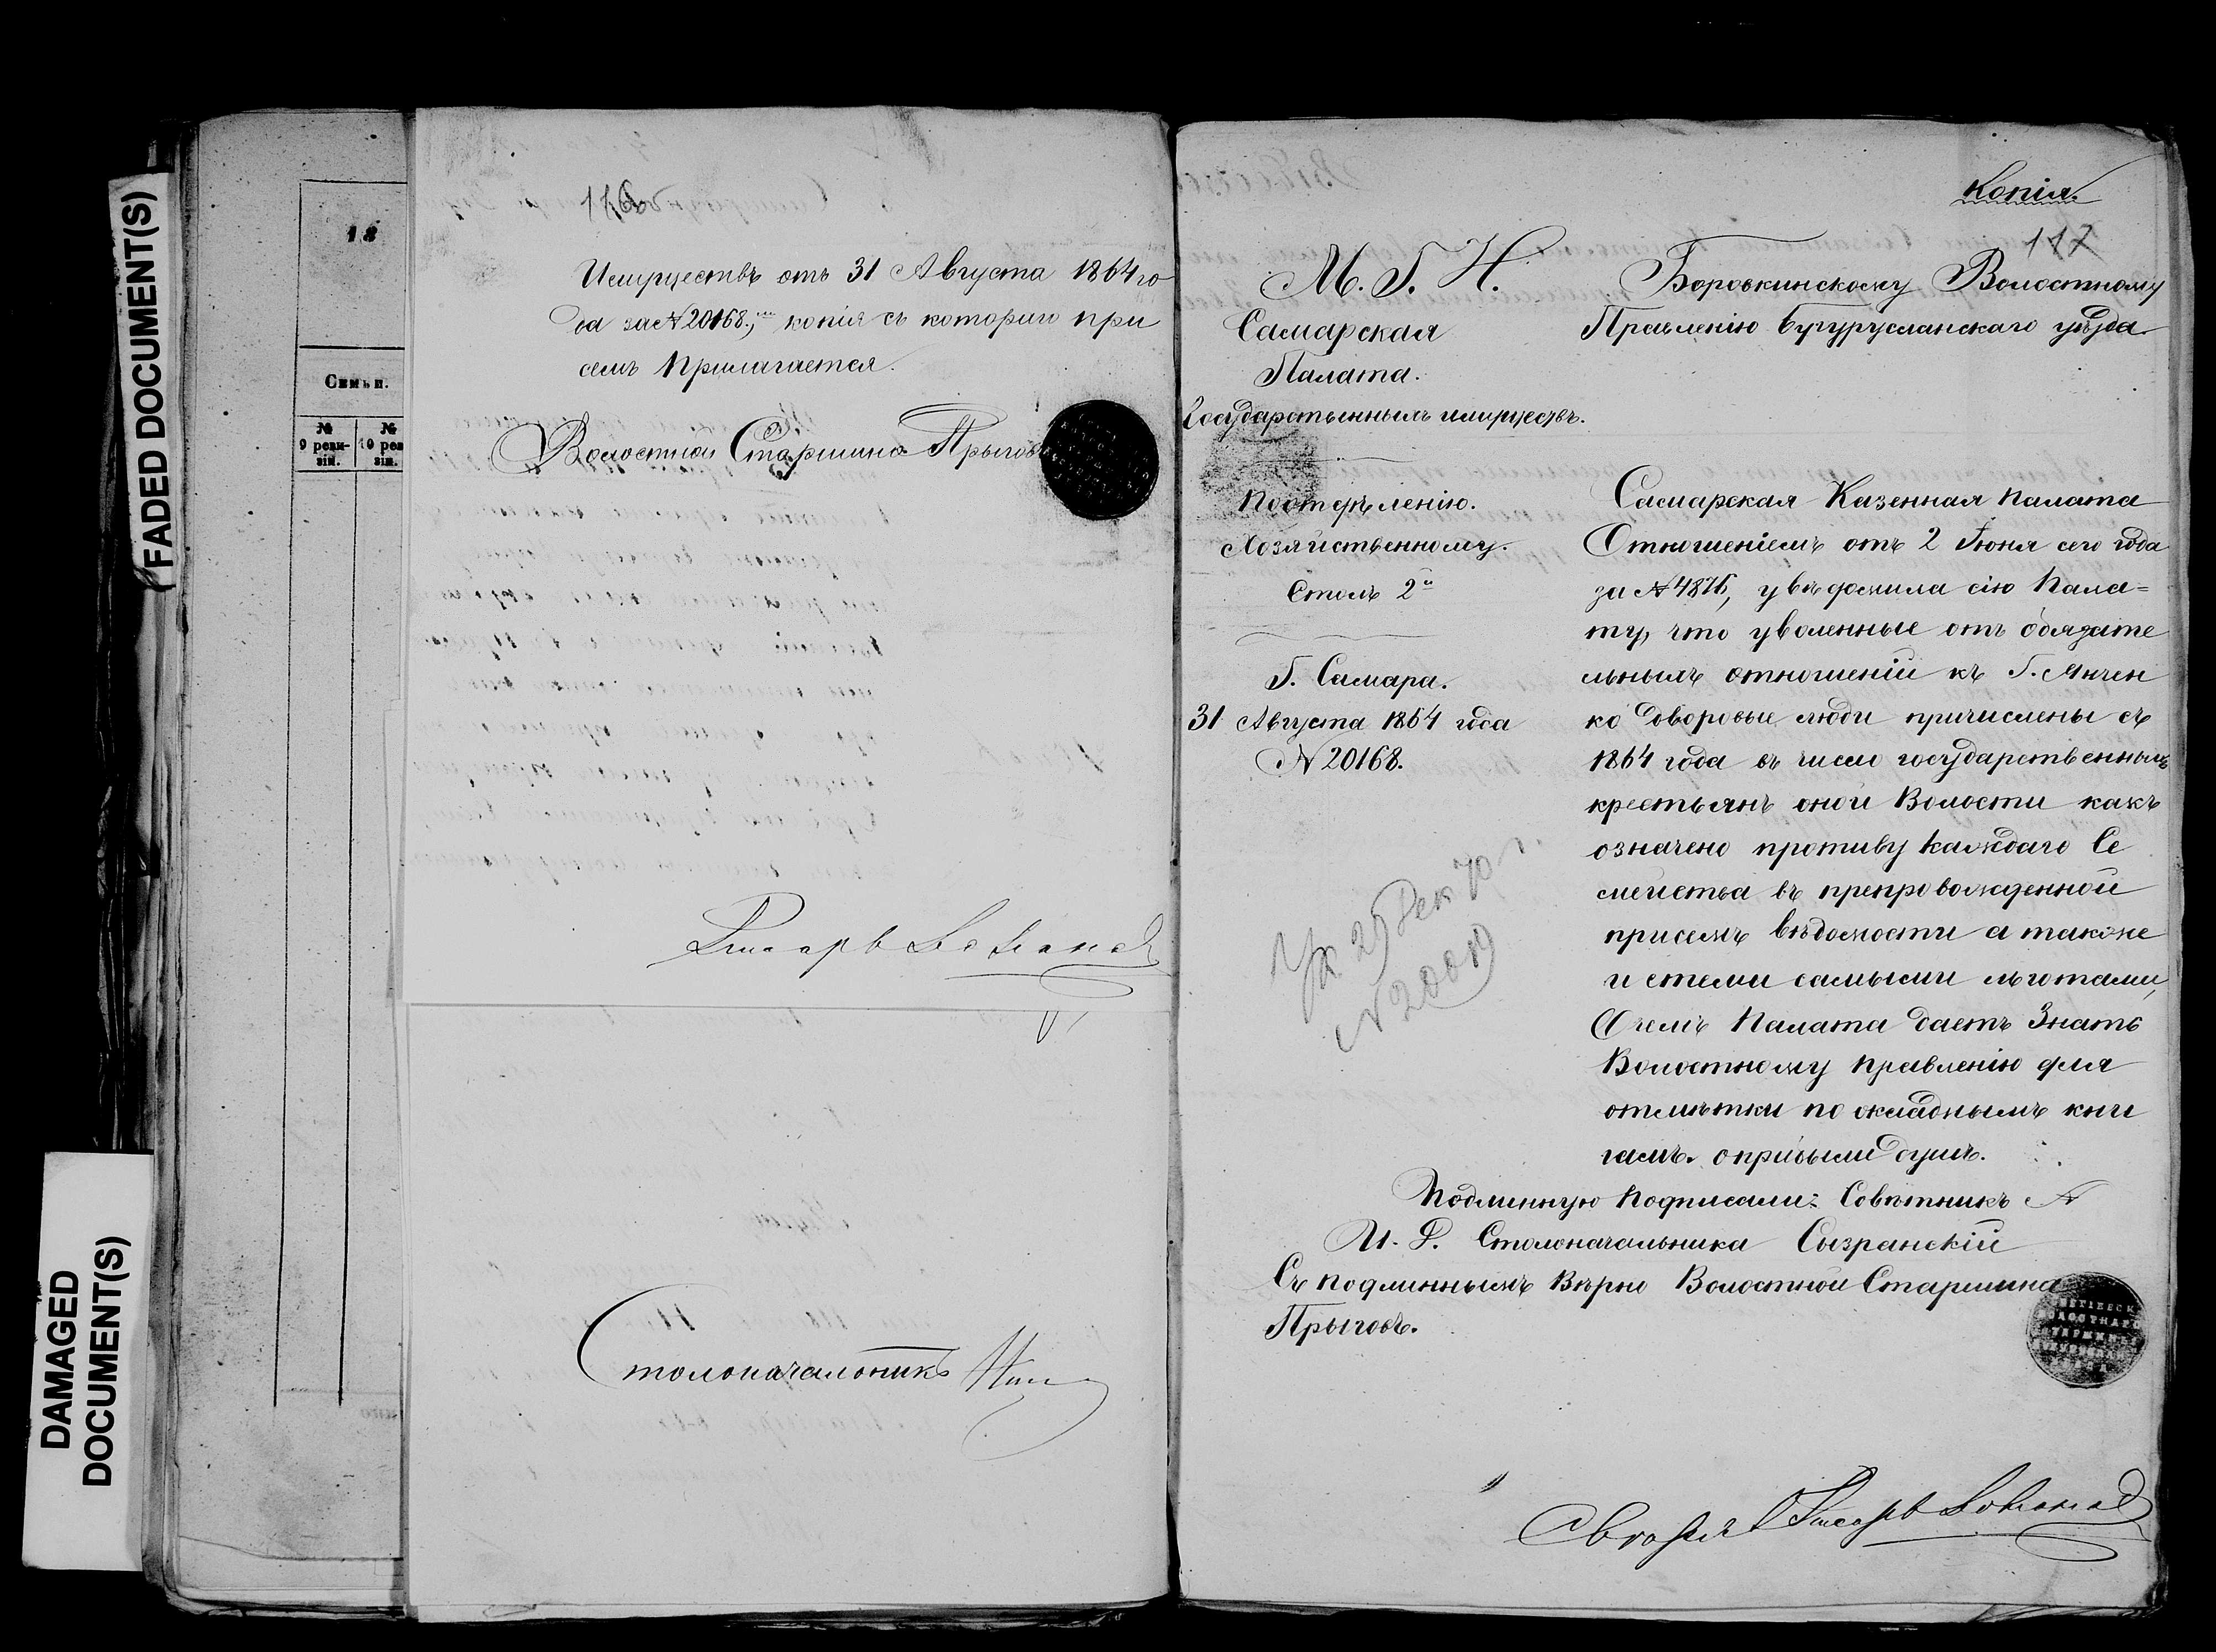 (FADED DOCUMENT(S)
DAMAGED
DOCUMENT(S)
18
Семьи.
№ 9 реви-зіи.
№ 10 рев зіи.
116
Имуществъ отъ 31 Августа 1864 го
да за № 20168, копія съ котораго при
семъ прилагается.
Волостной Старшина Прыговъ
Писарь
Столоначальникъ
Копія.
117
М. Г. И.
Самарская
Палата.
Государственныхъ имуществъ.
По отдѣленію.
Хозяйственному.
Столъ 2й
Г. Самара.
31 Августа 1864 года
№ 20168.
Ук 29 Дек 70 г.
№ 20019
Боровкинскому Волостному
Правленію Бугурусланскаго уѣзда
Самарская Казенная Палата
Отношеніемъ отъ 2 Іюня сего года
за № 4876, увѣдомила сію Пала=
ту, что уволенные отъ обязате
льныхъ отношеній къ Г. Янчен
ко дворовые люди причислены съ
1864 года въ число государственныхъ
крестьянъ оной Волости какъ
означено противу каждаго Се
мейства въ препровожденной
присемъ вѣдомости а также
и стеми самыми льготами,
О чемъ Палата даетъ Знать
Волостному Правленію для
отмѣтки по окладнымъ кни
гамъ. о прибыли душъ.
Подлинную подписали: Совѣтникъ
И. Д. Столоначальника Сызранскій
Съ подлиннымъ Вѣрно Волостной Старшина
Прыговъ.
Писарь